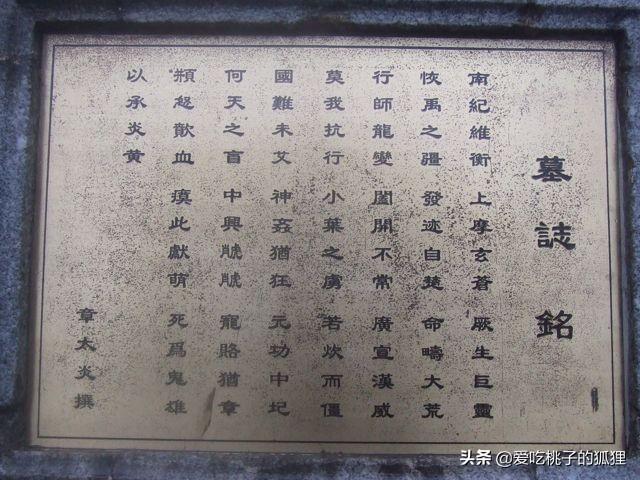 墓誌銘
南紀維衡 上摩玄蒼 厥生巨靈
恢禹之疆 發迹自楚 命疇大荒
行師龍變 闔開不常 廣宣漢威
莫我抗行 小葉之虜 若炊而僵
國難未艾 神姦猶狂 元功中圮
何天之盲 中興 寵賂猶章
歃血 瘼此獻萌 死爲鬼雄
以承炎黃
章太炎撰
头条 @爱吃桃子的狐狸